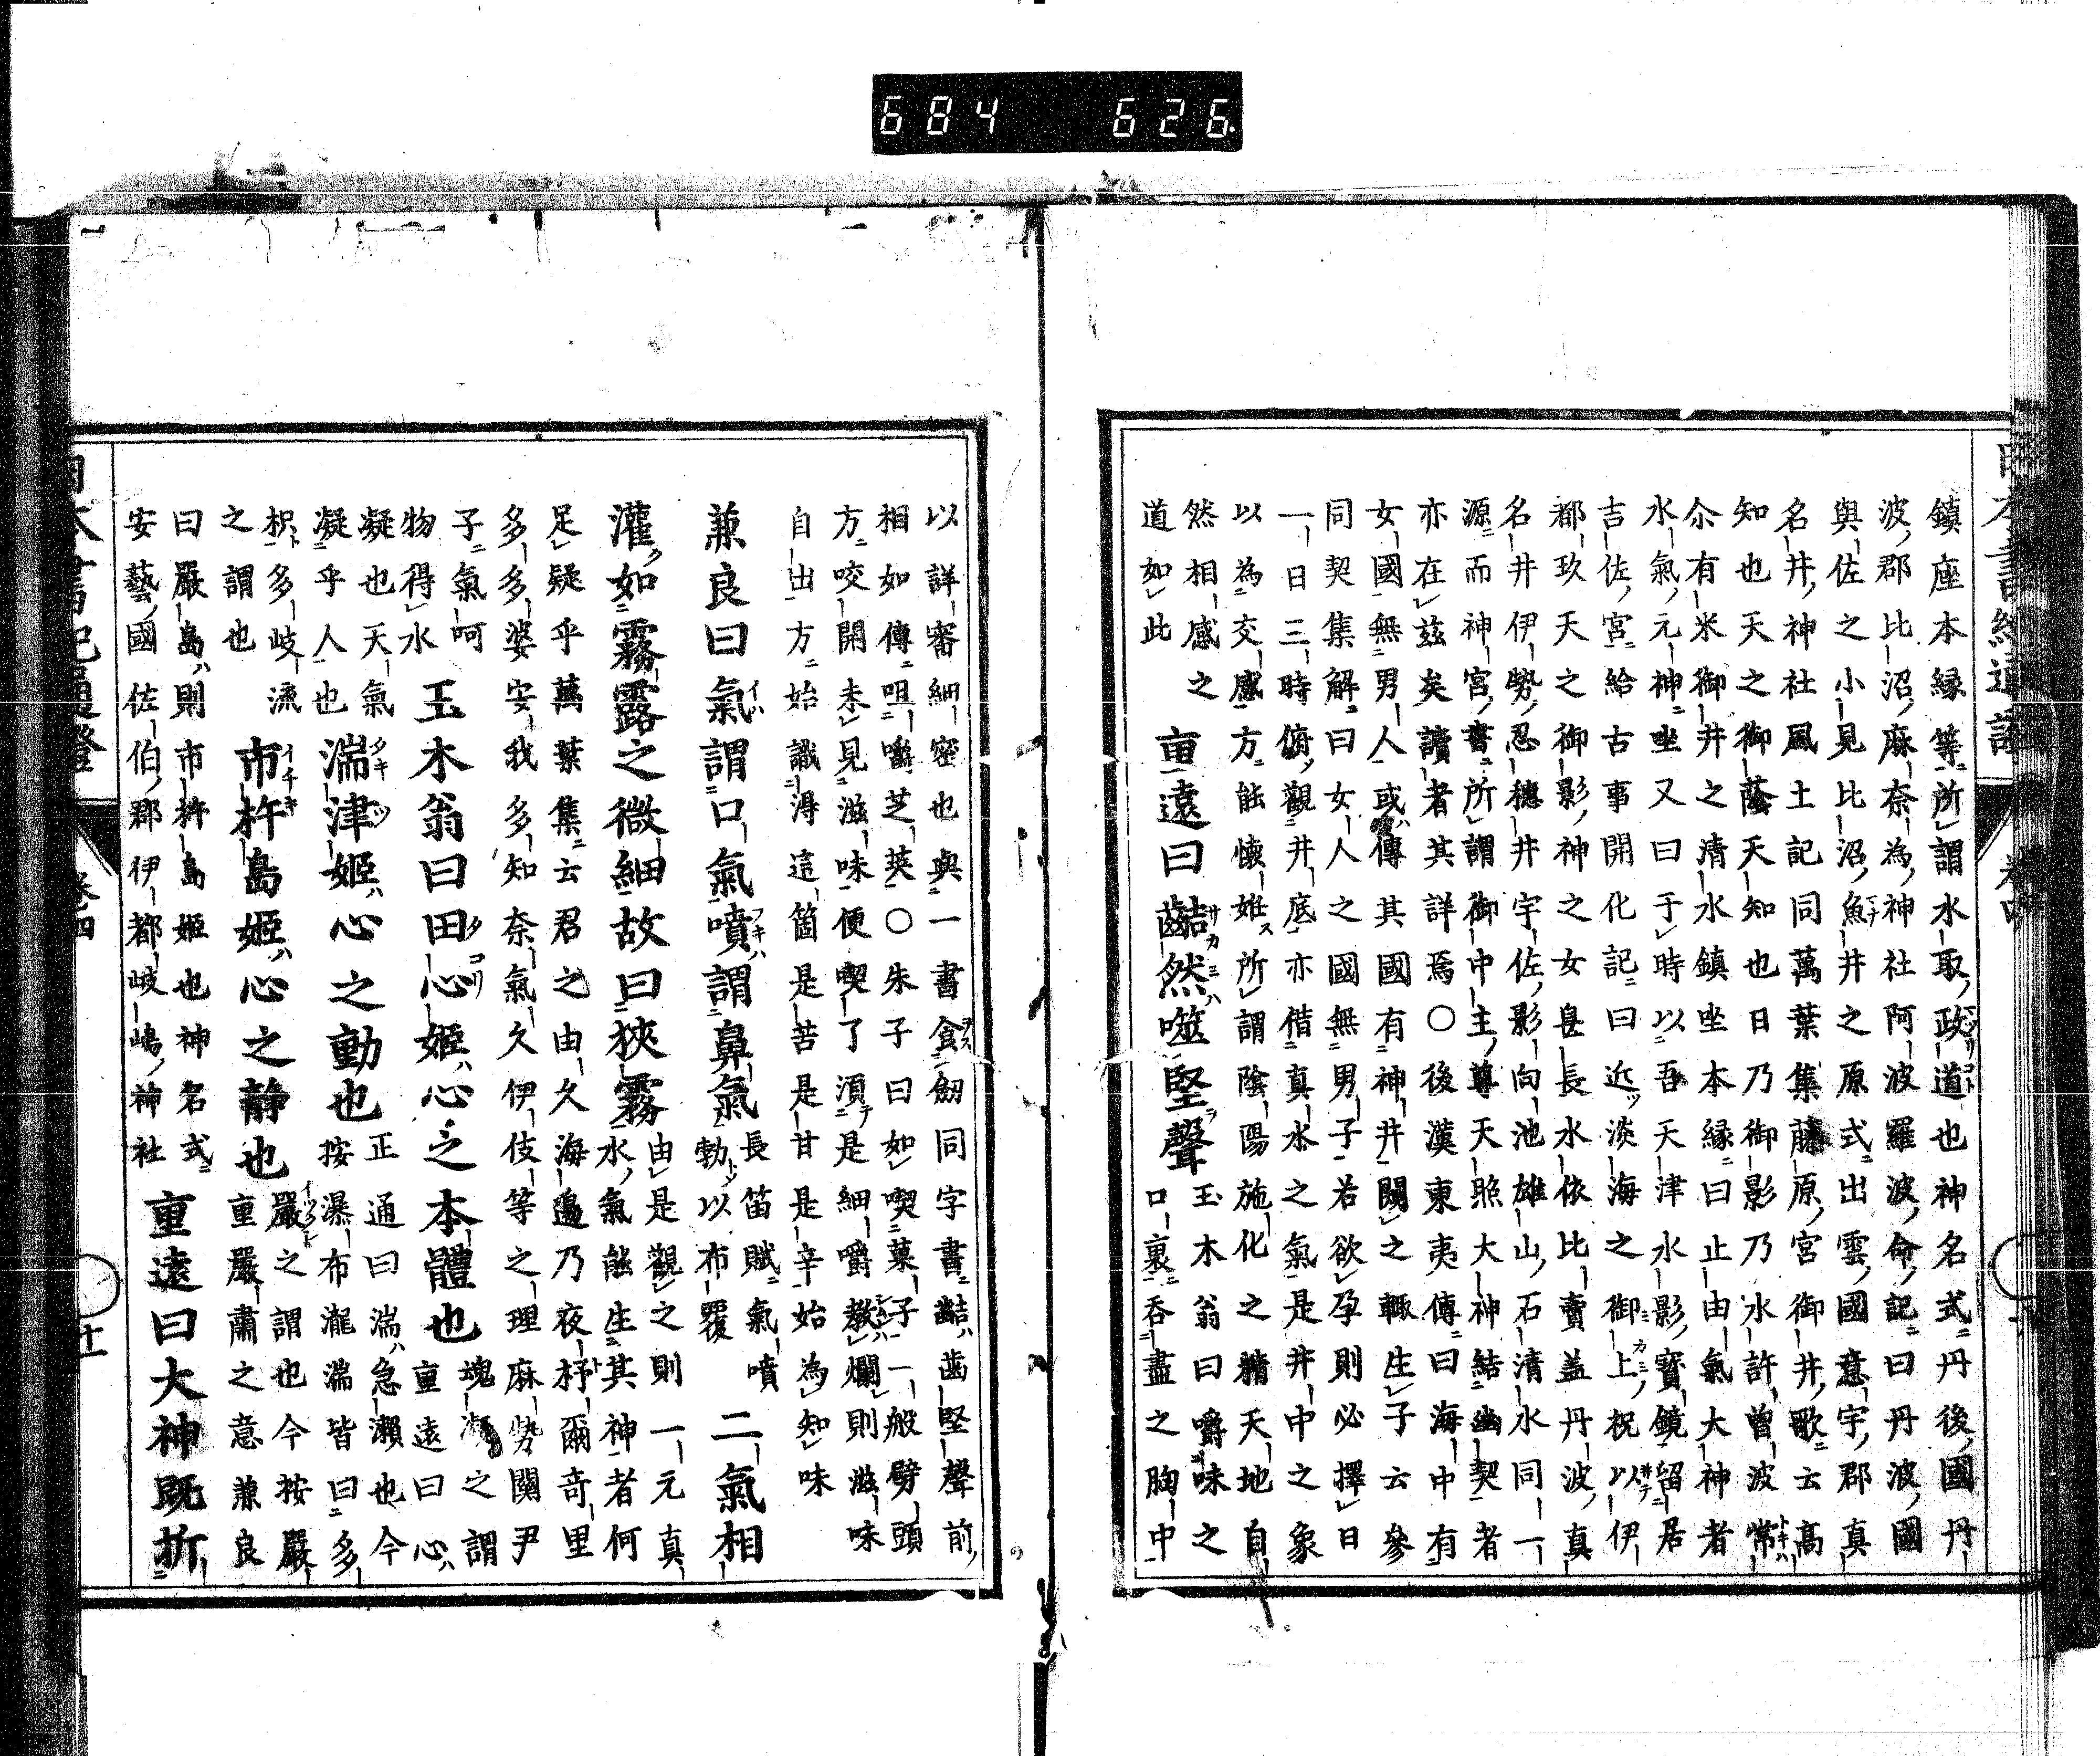 684 626
鎮座本縁等所謂水取政道也神名式丹後國丹
波郡比沼麻奈為神社阿波羅波命記曰丹波國
與佐之小見比沼魚井之原式出雲國意宇郡真
名井神社風土記同萬葉集藤原宮御井歌云髙
知也天之御蔭天知也日乃御影乃水許曽波常
尒有米御井之清水鎮坐本縁曰止由氣大神者
水氣元神坐又曰于時以吾天津水影寶鏡留居
吉佐宮給古事開化記曰近淡海之御上祝以伊
都玖天之御影神之女息長水依比賣盖丹波真
名井伊勢忍穗井宇佐影向池雄山石清水同一
源而神宮書所謂御中主尊天照大神結幽契者
亦在茲矣讀者其詳焉〇後漢東夷傳曰海中有
女國無男人或傳其國有神井闚之輙生子云參
同契集解曰女人之國無男子若欲孕則必擇日
一日三時俯觀井底亦借真水之氣是井中之象
以為交感方能懷姙所謂陰陽施化之精天地自
然相感之
道如此
重遠曰齰然噬堅聲
玉木翁曰嚼味之
口裏呑盡之胸中
以詳審細密也與一書食劒同字書齰齒堅聲前
相如傳咀嚼芝英〇朱子曰如喫菓子一般劈頭
方咬開未見滋味便喫了須是細嚼教爛則滋味
自出方始識淂這箇是苦是甘是辛始為知味
兼良曰氣謂口氣噴謂鼻氣
長笛賦氣噴
勃以布覆
二氣相
灌如霧露之微細故曰狹霧
由是觀之則一元真
水氣能生其神者何
足疑乎萬葉集云君之由久海邊乃夜杼爾奇里
多多婆安我多知奈氣久伊伎等之理麻勢關尹
子氣呵
物得水
玉木翁曰田心姫心之本體也
魂凝之謂
重遠曰心
凝也天氣
凝乎人也
湍津姫心之動也
正通曰湍急瀬也今
按瀑布瀧湍皆曰多
枳多岐流
之謂也
市杵島姫心之静也
嚴之謂也今按嚴
重嚴肅之意兼良
曰嚴島則市杵島姫也神名式
安藝國佐伯郡伊都岐嶋神社
重遠曰大神既折